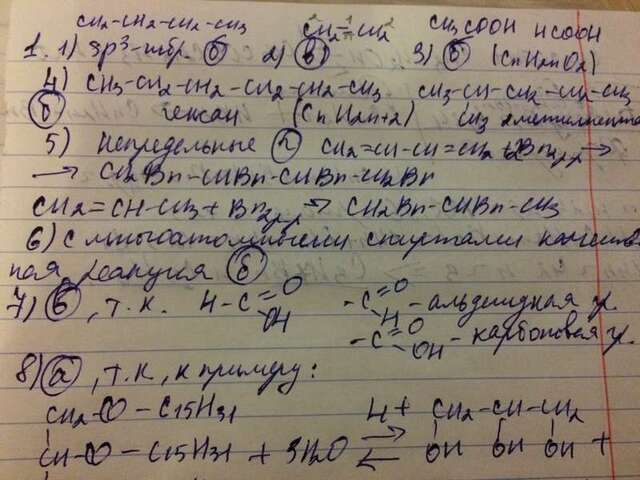 CH3-CH2-CH2-CH3 CH2=CH2 CH3COOH HCOOH
1. 1) sp³-гибр. б 2) в 3) б (CnH2nO2)
4) CH3-CH2-CH2-CH2-CH2-CH3 CH3-CH-CH2-CH2-CH3
б гексан (CnH2n+2) CH3 2метилпента
5) Непредельные г CH2=CH-CH=CH2 + 2Br2 р-р →
→ CH2Br-CHBr-CHBr-CH2Br
CH2=CH-CH3 + Br2 р-р → CH2Br-CHBr-CH3
6) С многоатомными спиртами качествен
ная реакция б
7) в, т.к. H-C=O -C=O - альдегидная гр.
OH H
-C=O - карбоновая гр.
OH
8) а, т.к., к примеру:
CH2-O-C15H31 H+ CH2-CH-CH2
CH-O-C15H31 + 3H2O ⇄ OH OH OH +